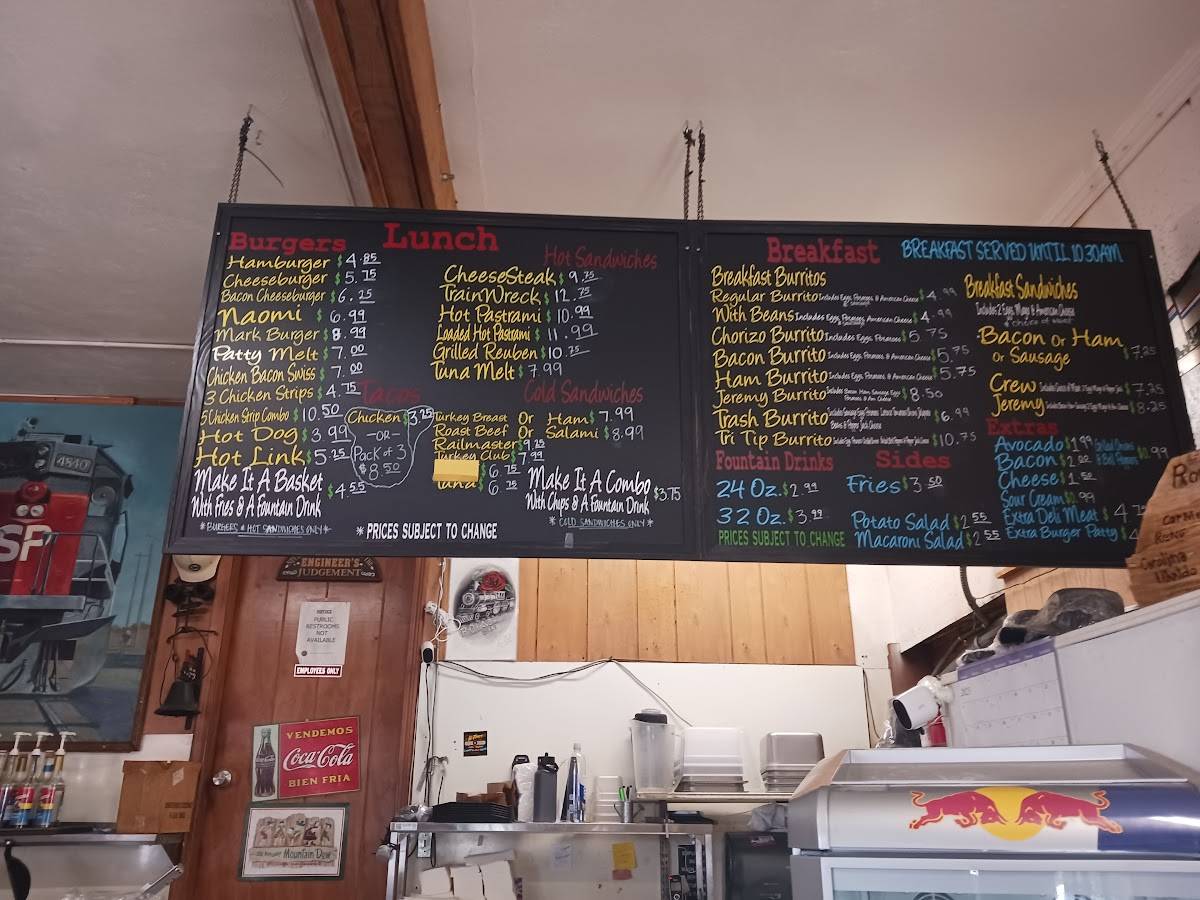 Lunch
Burgers
Hamburger $4.85
Cheeseburger $5.15
Bacon Cheeseburger $6.25
Naomi $6.99
Mark Burger $8.99
Patty Melt $7.00
Chicken Bacon Swiss $7.00
3 Chicken Strips $4.75
5 Chicken Strip Combo $10.50
Hot Dog $3.99
Hot Link $5.25
Make It A Basket
With Fries & A Fountain Drink $4.55
*BURGERS & HOT SANDWICHES ONLY*
Tacos
Chicken $3.25
-OR-
Pack of 3
$8.50
Hot Sandwiches
CheeseSteak $9.75
TrainWreck $12.75
Hot Pastrami $10.99
Loaded Hot Pastrami $11.99
Grilled Reuben $10.75
Tuna Melt $7.99
Cold Sandwiches
Turkey Breast Or Ham $7.99
Roast Beef Or Salami $8.99
Railmaster $9.25
Turkey Club $7.99
$6.75
Tuna $6.75
Make It A Combo
With Chips & A Fountain Drink $3.75
*COLD SANDWICHES ONLY*
*PRICES SUBJECT TO CHANGE
Breakfast
BREAKFAST SERVED UNTIL 10:30AM
Breakfast Burritos
Regular Burrito Includes Eggs, Potatoes & American Cheese $4.99
With Beans Includes Eggs, Potatoes, American Cheese $4.99
Chorizo Burrito Includes Eggs, Potatoes $5.75
Bacon Burrito Includes Eggs, Potatoes & American Cheese $5.75
Ham Burrito Includes Eggs, Potatoes, & American Cheese $5.75
Jeremy Burrito $8.50
Trash Burrito $6.99
Tri Tip Burrito $10.75
Breakfast Sandwiches
Includes 2 Eggs, Mayo & American Cheese
Bacon Or Ham
Or Sausage $7.25
Crew $7.25
Jeremy $8.25
Extras
Avocado $1.99
Bacon $2.00
Cheese $1.50
Sour Cream $0.99
Extra Deli Meat $4
Extra Burger Patty $4
Grilled Onions
& Bell Peppers $0.99
Fountain Drinks
24 Oz. $2.99
32 Oz. $3.99
PRICES SUBJECT TO CHANGE
Sides
Fries $3.50
Potato Salad $2.55
Macaroni Salad $2.55
4540
SP
ENGINEER'S
JUDGEMENT
NOTICE
PUBLIC
RESTROOMS
NOT
AVAILABLE
EMPLOYEES ONLY
VENDEMOS
Coca-Cola
BIEN FRIA
Mountain Dew
Carolina